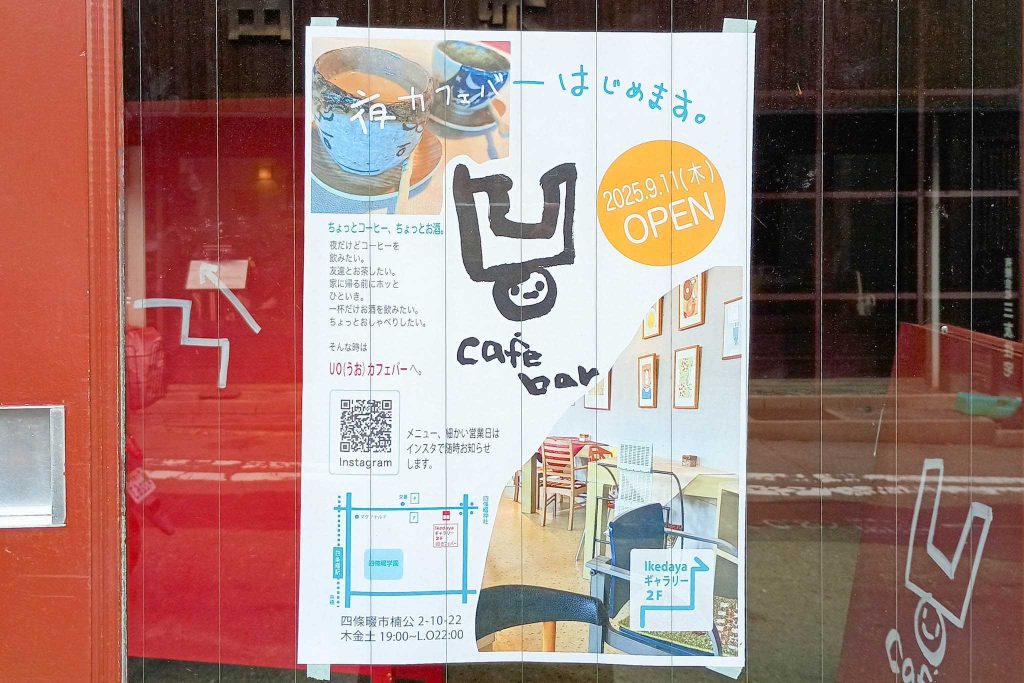 夜カフェバーはじめます。
2025.9.11(木)
OPEN
cafe
bar
ちょっとコーヒー、ちょっとお酒。
夜だけどコーヒーを
飲みたい。
友達とお茶したい。
家に帰る前にホッと
ひといき。
一杯だけお酒を飲みたい。
ちょっとおしゃべりしたい。
そんな時は
UO(うお)カフェバーへ。
Instagram
メニュー、細かい営業日は
インスタで随時お知らせ
します。
交番
マクドナルド
四條畷神社
Ikedaya
ギャラリー
2F
四条畷駅
四條畷学園
四條畷市楠公 2-10-22
木金土 19:00~L.O22:00
Ikedaya
ギャラリー
2F